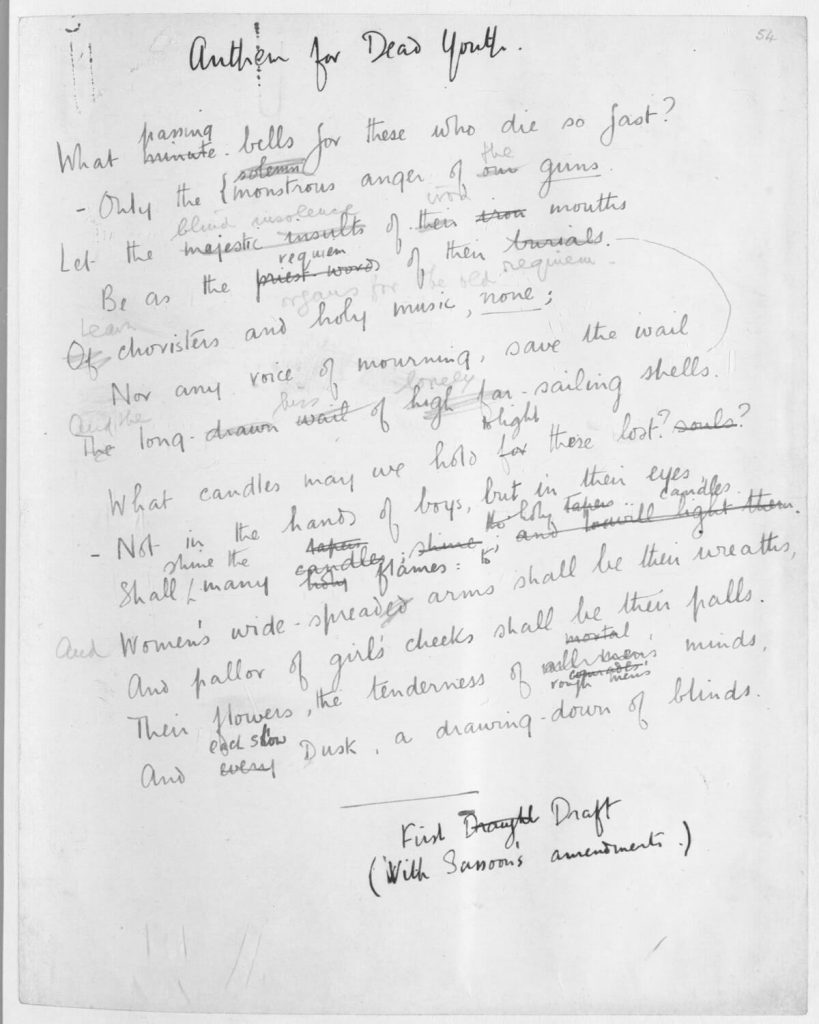 54
Anthem for Dead Youth.
passing
What minute bells for these who die so fast?
solemn the
- Only the { monstrous anger of our guns.
blind insolence iron
Let the majestic insults of their iron mouths
requiem
Be as the priest-words of their burials.
organs for the old requiem.
Learn
Of choristers and holy music, none;
Nor any voice of mourning, save the wail
And the hiss lonely
The long-drawn wail of high far-sailing shells.
to light
What candles may we hold for these lost? souls?
- Not in the hands of boys, but in their eyes
shine the tapers the holy tapers candles.
Shall many candles; shine holy flames: to and will light them.
And Women's wide-spreaded arms shall be their wreaths,
And pallor of girl's cheeks shall be their palls.
mortal
Their flowers, the tenderness of all men's minds,
comrades'
rough men's
each slow
And every Dusk, a drawing-down of blinds.
First Draught Draft
(With Sassoon's amendments.)